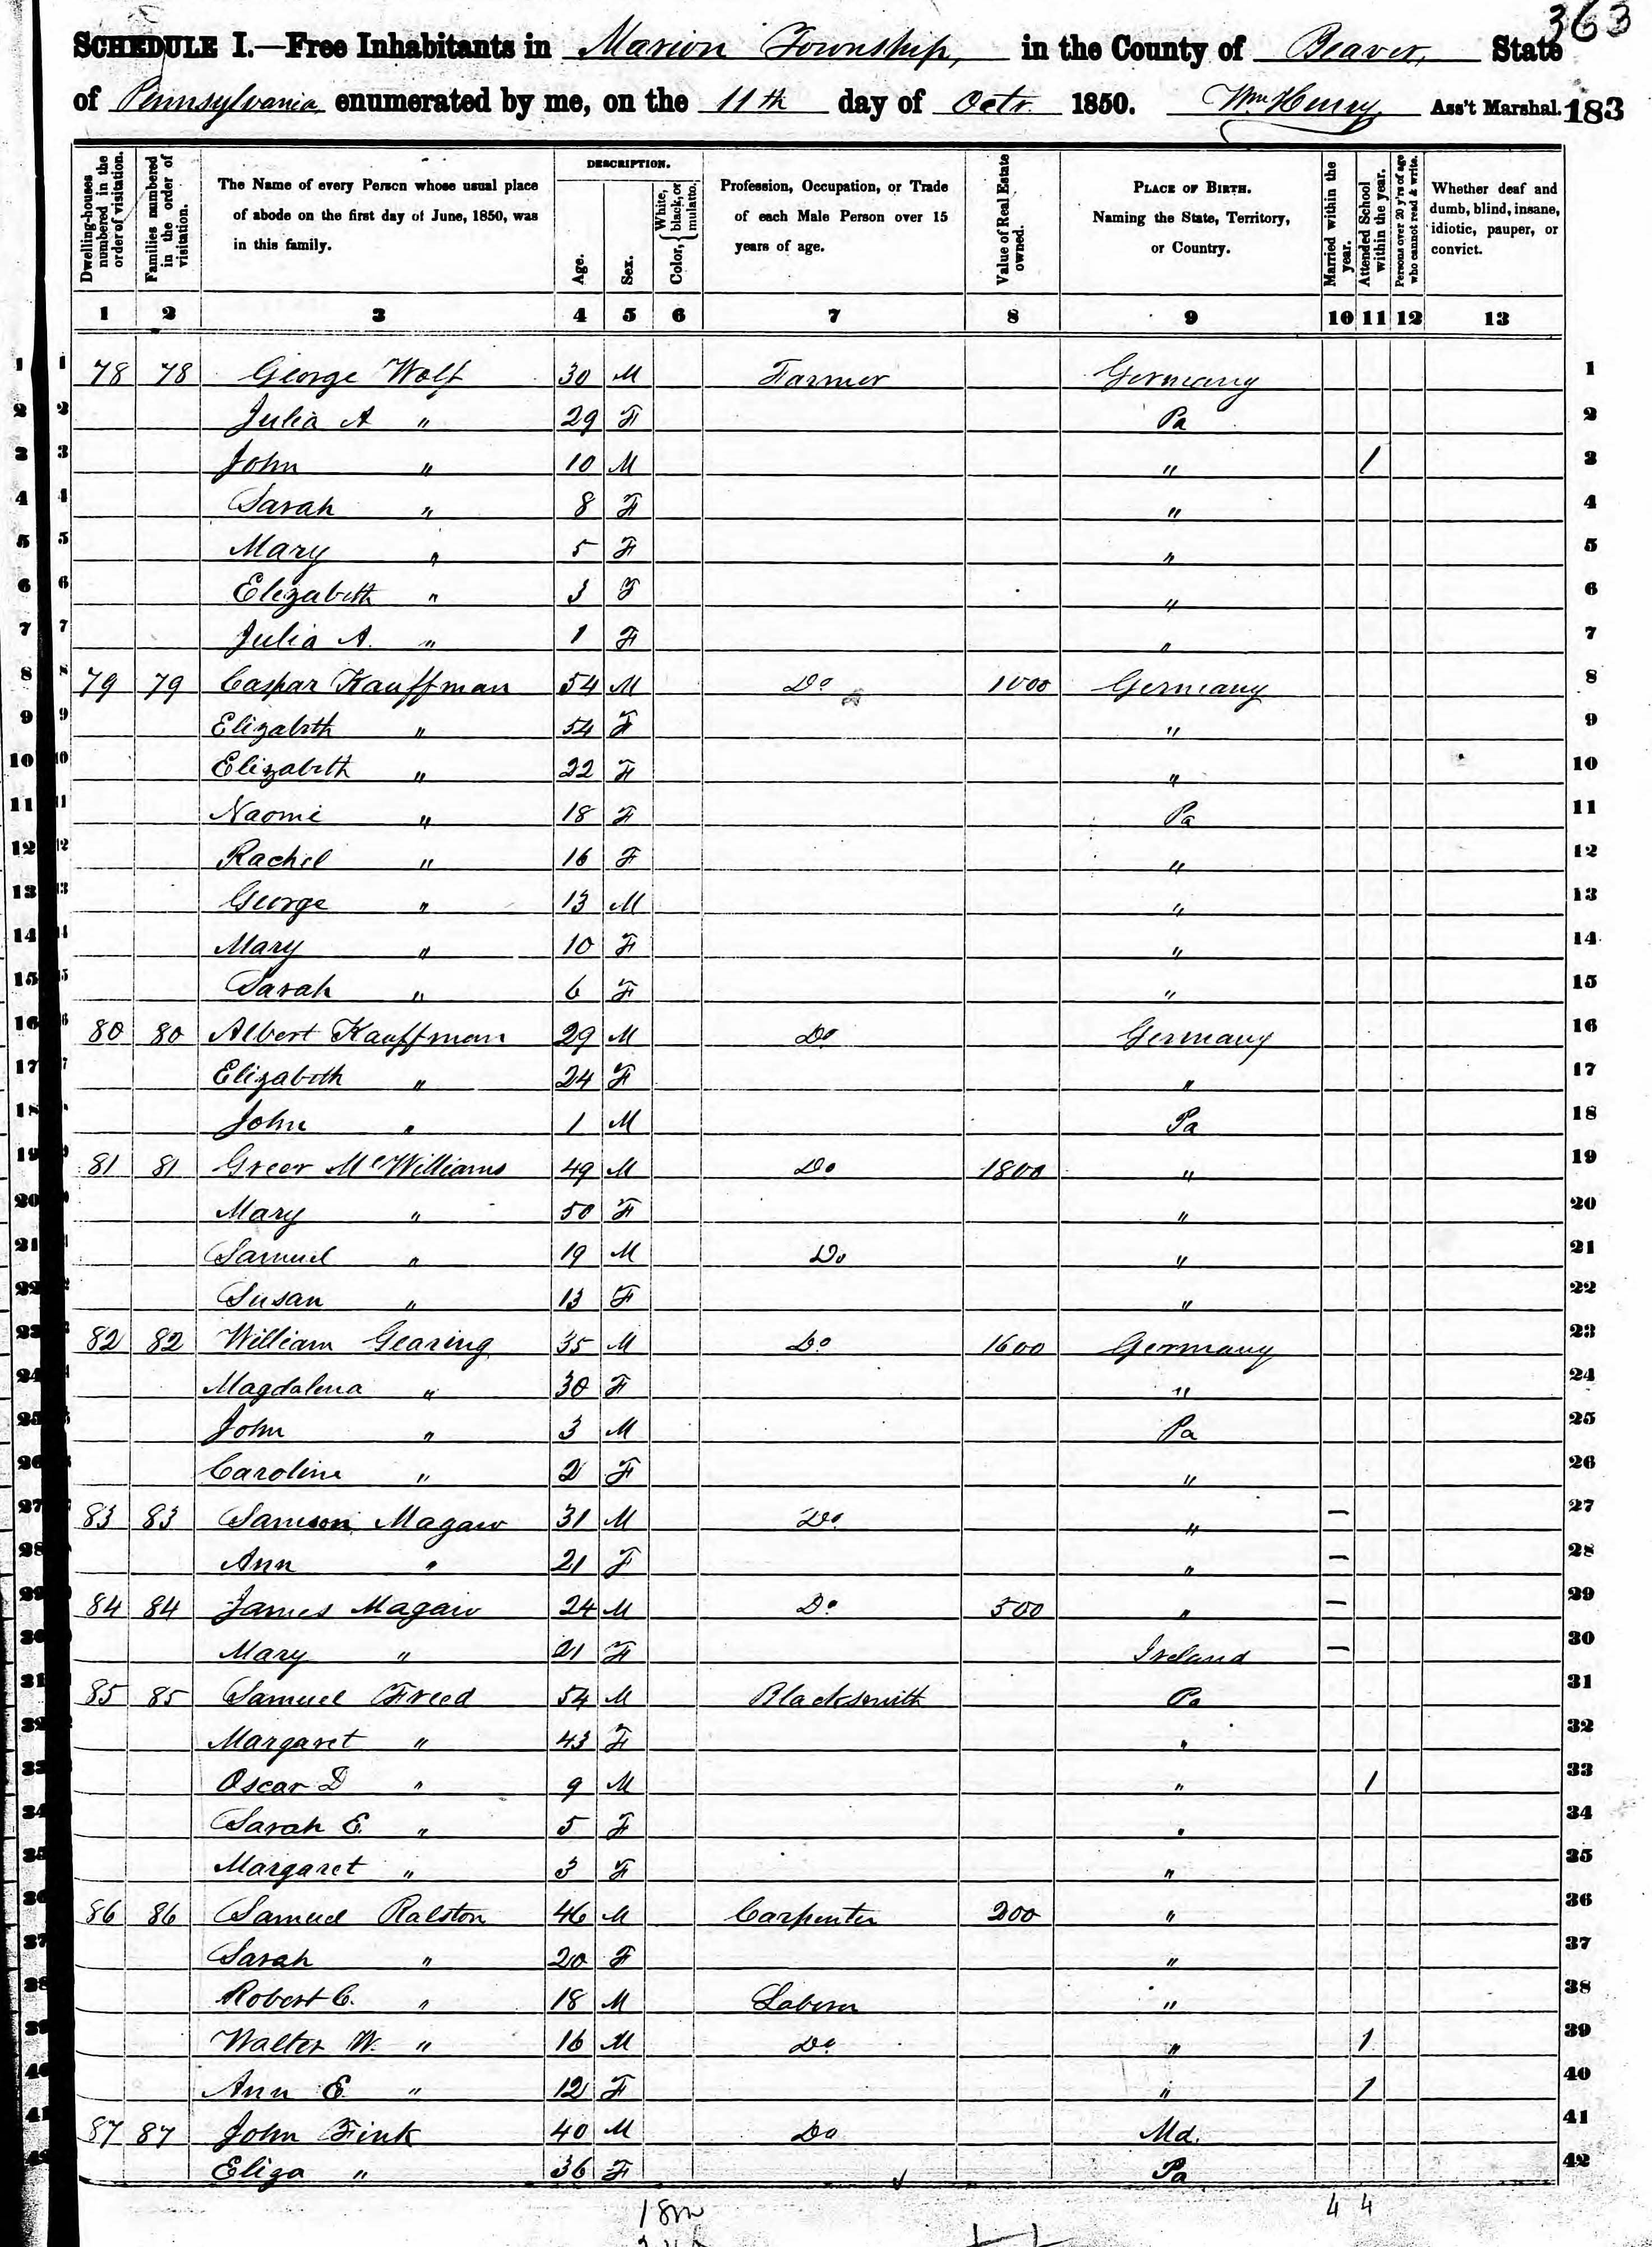 363
SCHEDULE I.—Free Inhabitants in Marion Township, in the County of Beaver, State
of Pennsylvania enumerated by me, on the 11th day of Octr. 1850. Wm Henry Ass't Marshal. 183
Dwelling-houses numbered in the order of visitation.
Families numbered in the order of visitation.
The Name of every Person whose usual place of abode on the first day of June, 1850, was in this family.
DESCRIPTION.
Age.
Sex.
Color, { White, black, or mulatto.
Profession, Occupation, or Trade of each Male Person over 15 years of age.
Value of Real Estate owned.
PLACE OF BIRTH. Naming the State, Territory, or Country.
Married within the year.
Attended School within the year.
Persons over 20 y'rs of age who cannot read & write.
Whether deaf and dumb, blind, insane, idiotic, pauper, or convict.
1 2 3 4 5 6 7 8 9 10 11 12 13
1 1 78 78 George Wolf 30 M Farmer Germany 1
2 2 Julia A " 29 F Pa 2
3 3 John " 10 M " 1 3
4 4 Sarah " 8 F " 4
5 5 Mary " 5 F " 5
6 6 Elizabeth " 3 F " 6
7 7 Julia A. " 1 F " 7
8 8 79 79 Caspar Kauffman 54 M Do 1000 Germany 8
9 9 Elizabeth " 54 F " 9
10 10 Elizabeth " 22 F " 10
11 11 Naomi " 18 F Pa 11
12 12 Rachel " 16 F " 12
13 13 George " 13 M " 13
14 14 Mary " 10 F " 14
15 15 Sarah " 6 F " 15
16 6 80 80 Albert Kauffman 29 M Do Germany 16
17 7 Elizabeth " 24 F " 17
18 John " 1 M Pa 18
19 81 81 Greer McWilliams 49 M Do 1800 " 19
20 Mary " 50 F " 20
21 Samuel " 19 M Do " 21
22 Susan " 13 F " 22
23 82 82 William Gearing 35 M Do 1600 Germany 23
24 Magdalena " 30 F " 24
25 John " 3 M Pa 25
26 Caroline " 2 F " 26
27 83 83 Samson Magaw 31 M Do " – 27
28 Ann " 21 F " – 28
29 84 84 James Magaw 24 M Do 500 " – 29
30 Mary " 21 F Ireland – 30
31 85 85 Samuel Freed 54 M Blacksmith Pa 31
32 Margaret " 43 F " 32
33 Oscar D " 9 M " 1 33
34 Sarah E. " 5 F " 34
35 Margaret " 3 F " 35
36 86 86 Samuel Ralston 46 M Carpenter 200 " 36
37 Sarah " 20 F " 37
38 Robert C. " 18 M Laborer " 38
39 Walter W. " 16 M Do " 1 39
40 Ann E " 12 F " 1 40
41 87 87 John Fink 40 M Do Md. 41
42 Eliza " 36 F Pa 42
18m 4 4